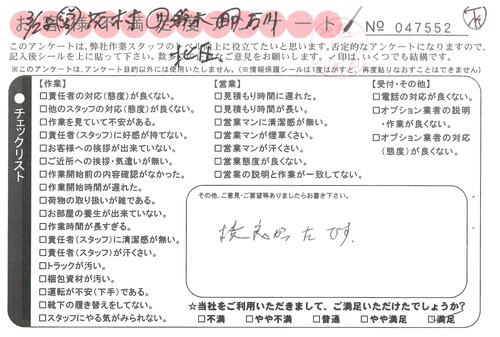 お客様不満足度アンケート
№ 047552
このアンケートは、弊社作業スタッフのレベル向上に役立てたいと思います。否定的なアンケートになりますので、
記入後シールを上に貼って下さい。数多くの厳しいご意見をお願いします。✓印は、いくつでも結構です。
※このアンケートは、アンケート目的以外には使用いたしません。(※情報保護シールは1度はがすと、再度貼りなおすことはできません)
チェックリスト
【作業】
□責任者の対応(態度)が良くない。
□他のスタッフの対応(態度)が良くない。
□作業を見ていて不安がある。
□責任者(スタッフ)に好感が持てない。
□お客様への挨拶が出来ていない。
□ご近所への挨拶・気遣いが無い。
□作業開始前の内容確認がなかった。
□作業開始時間が遅れた。
□荷物の取り扱いが雑である。
□お部屋の養生が出来ていない。
□作業時間が長すぎる。
□責任者(スタッフ)に清潔感が無い。
□責任者(スタッフ)が汗くさい。
□トラックが汚い。
□梱包資材が汚い。
□運転が不安(下手)である。
□靴下の履き替えをしてない。
□スタッフにやる気がみられない。
【営業】
□見積もり時間に遅れた。
□見積もり時間が長い。
□営業マンに清潔感が無い。
□営業マンが煙草くさい。
□営業マンが汗くさい。
□営業態度が良くない。
□営業の説明と作業が一致してない。
【受付・その他】
□電話の対応が良くない。
□オプション業者の説明
・作業が良くない。
□オプション業者の対応
(態度)が良くない。
その他、ご意見・ご要望等ありましたらお書き下さい。
良かったです。
☆当社をご利用いただきまして、ご満足いただけたでしょうか?
□不満 □やや不満 □普通 □やや満足 ☑満足